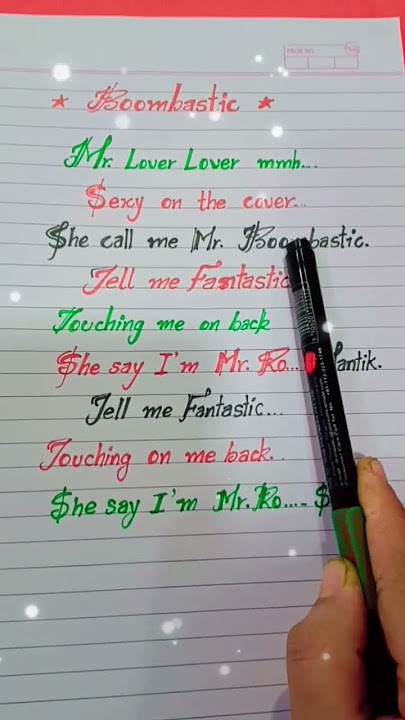 PAGE NO.
★ Boombastic ★
Mr. Lover Lover mmh...
$exy on the cover...
$he call me Mr. Boombastic.
Tell me Fantastic
Touching me on back
$he say I'm Mr. Ro... antik.
Tell me Fantastic...
Touching on me back..
$he say I'm Mr. Ro.... $